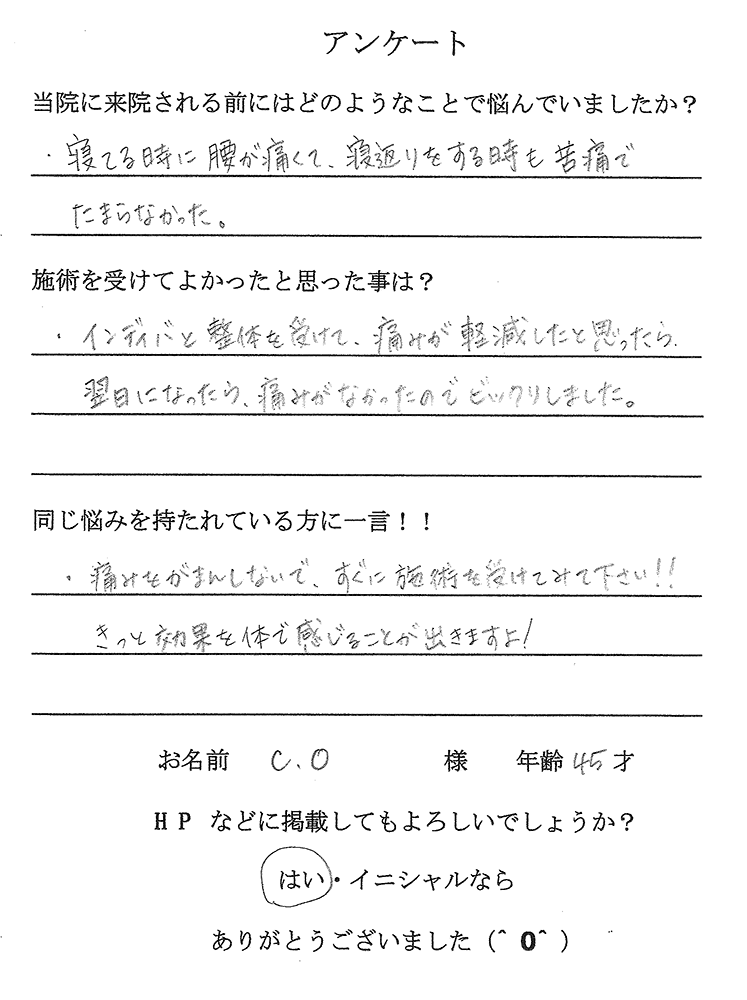 アンケート
当院に来院される前にはどのようなことで悩んでいましたか？
・寝てる時に腰が痛くて、寝返りをする時も苦痛で
たまらなかった。
施術を受けてよかったと思った事は？
・インディバと整体を受けて、痛みが軽減したと思ったら、
翌日になったら、痛みがなかったのでビックリしました。
同じ悩みを持たれている方に一言！！
・痛みをがまんしないで、すぐに施術を受けてみて下さい!!
きっと効果を体で感じることが出きますよ!
お名前 C.O 様 年齢 45 才
HP などに掲載してもよろしいでしょうか？
はい・イニシャルなら
ありがとうございました（＾0＾）